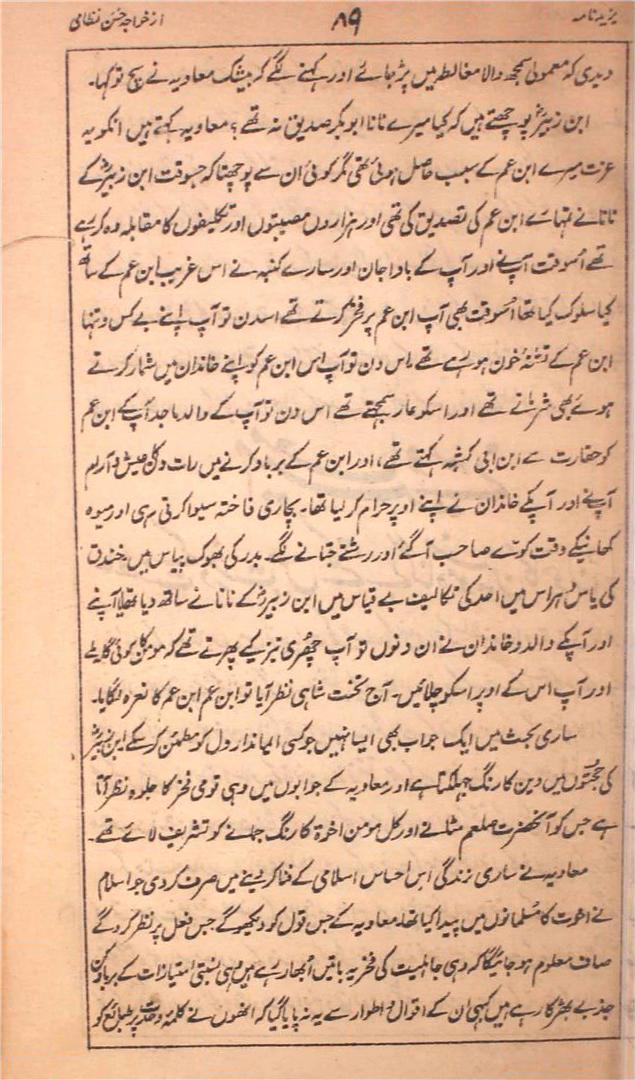 یزید نامہ ۸۹ از خواجہ حسن نظامی
دیدی کہ معمولی سمجھ والا مغالطہ میں پڑ جائے اور کہنے لگے کہ بیشک معاویہ نے سچ تو کہا۔
ابن زبیرؓ پوچھتے ہیں کہ کیا میرے نانا ابوبکر صدیق نہ تھے؟ معاویہ کہتے ہیں انکو یہ
عزت میرے ابن عم کے سبب حاصل ہوئی تھی مگر کوئی ان سے پوچھتا کہ جسوقت ابن زبیرؓ کے
نانا نے تمہارے ابن عم کی تصدیق کی تھی اور ہزاروں مصیبتوں اور تکلیفوں کا مقابلہ وہ کر رہے
تھے اسوقت آپنے اور آپ کے باوا جان اور سارے کنبہ نے اس غریب ابن عم کے ساتھ
کیا سلوک کیا تھا اسوقت بھی آپ ابن عم پر فخر کرتے تھے اسدن تو آپ اپنے بے کس و تنہا
ابن عم کے تشنۂ خون ہو رہے تھے۔ اس دن تو آپ اس ابن عم کو اپنے خاندان میں شمار کرتے
ہوئے بھی شرماتے تھے اور اسکو عار سمجھتے تھے اس دن تو آپ کے والد ماجد آپکے ابن عم
کو حقارت سے ابن ابی کبشہ کہتے تھے، اور ابن عم کے برباد کرنے میں رات دن کا عیش و آرام
آپنے اور آپکے خاندان نے اپنے اوپر حرام کر لیا تھا۔ بچاری فاختہ سیوا کرتی رہی اور میوہ
کھانیکے وقت کوّے صاحب آگئے اور رشتے جتانے لگے۔ بدر کی بھوک پیاس میں خندق
کی یاس و ہراس میں احد کی تکالیف بے قیاس میں ابن زبیرؓ کے نانا نے ساتھ دیا تھا یا آپنے
اور آپکے والد و خاندان نے ان دنوں تو آپ چھری تیز کیے پھرتے تھے کہ موکا کوئی گلا ملے
اور آپ اس کے اوپر اسکو چلائیں۔ آج تخت شاہی نظر آیا تو ابن عم ابن عم کا نعرہ لگایا۔
ساری بحث میں ایک جواب بھی ایسا نہیں جو کسی ایماندار دل کو مطمئن کر سکے ابن زبیرؓ
کی حجتوں میں دین کا رنگ جھلکتا ہے اور معاویہ کے جوابوں میں وہی قومی فخر کا جلوہ نظر آتا
ہے جس کو آنحضرت صلعم مٹانے اور کل مومن اخوۃ کا رنگ جمانے کو تشریف لائے تھے۔
معاویہ نے ساری زندگی اس احساس اسلامی کے فنا کر دینے میں صرف کر دی جو اسلام
نے اخوت کا مسلمانوں میں پیدا کیا تھا۔ معاویہ کے جس قول کو دیکھو گے جس فعل پر نظر کرو گے
صاف معلوم ہو جائیگا کہ وہی جاہلیت کی فخریہ باتیں اُبھار رہے ہیں وہی نسبتی امتیازات کے برباد کن
جذبے بھڑکا رہے ہیں کبھی ان کے اقوال و اطوار سے یہ نہ پایا گیا کہ انھوں نے کلمۂ وحدت پر طبائع کو